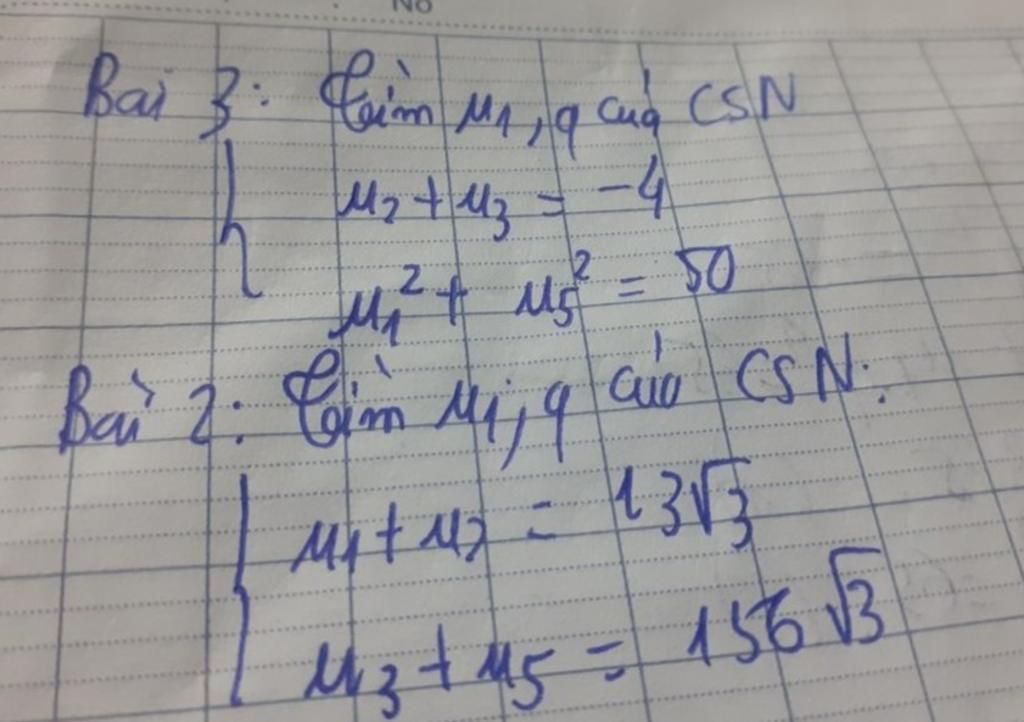 No
Bài 3: Tìm u₁, q của CSN
u₂ + u₃ = -4
u₁² + u₅² = 50
Bài 2: Tìm u₁, q của CSN:
u₁ + u₂ = 13√3
u₃ + u₅ = 156√3